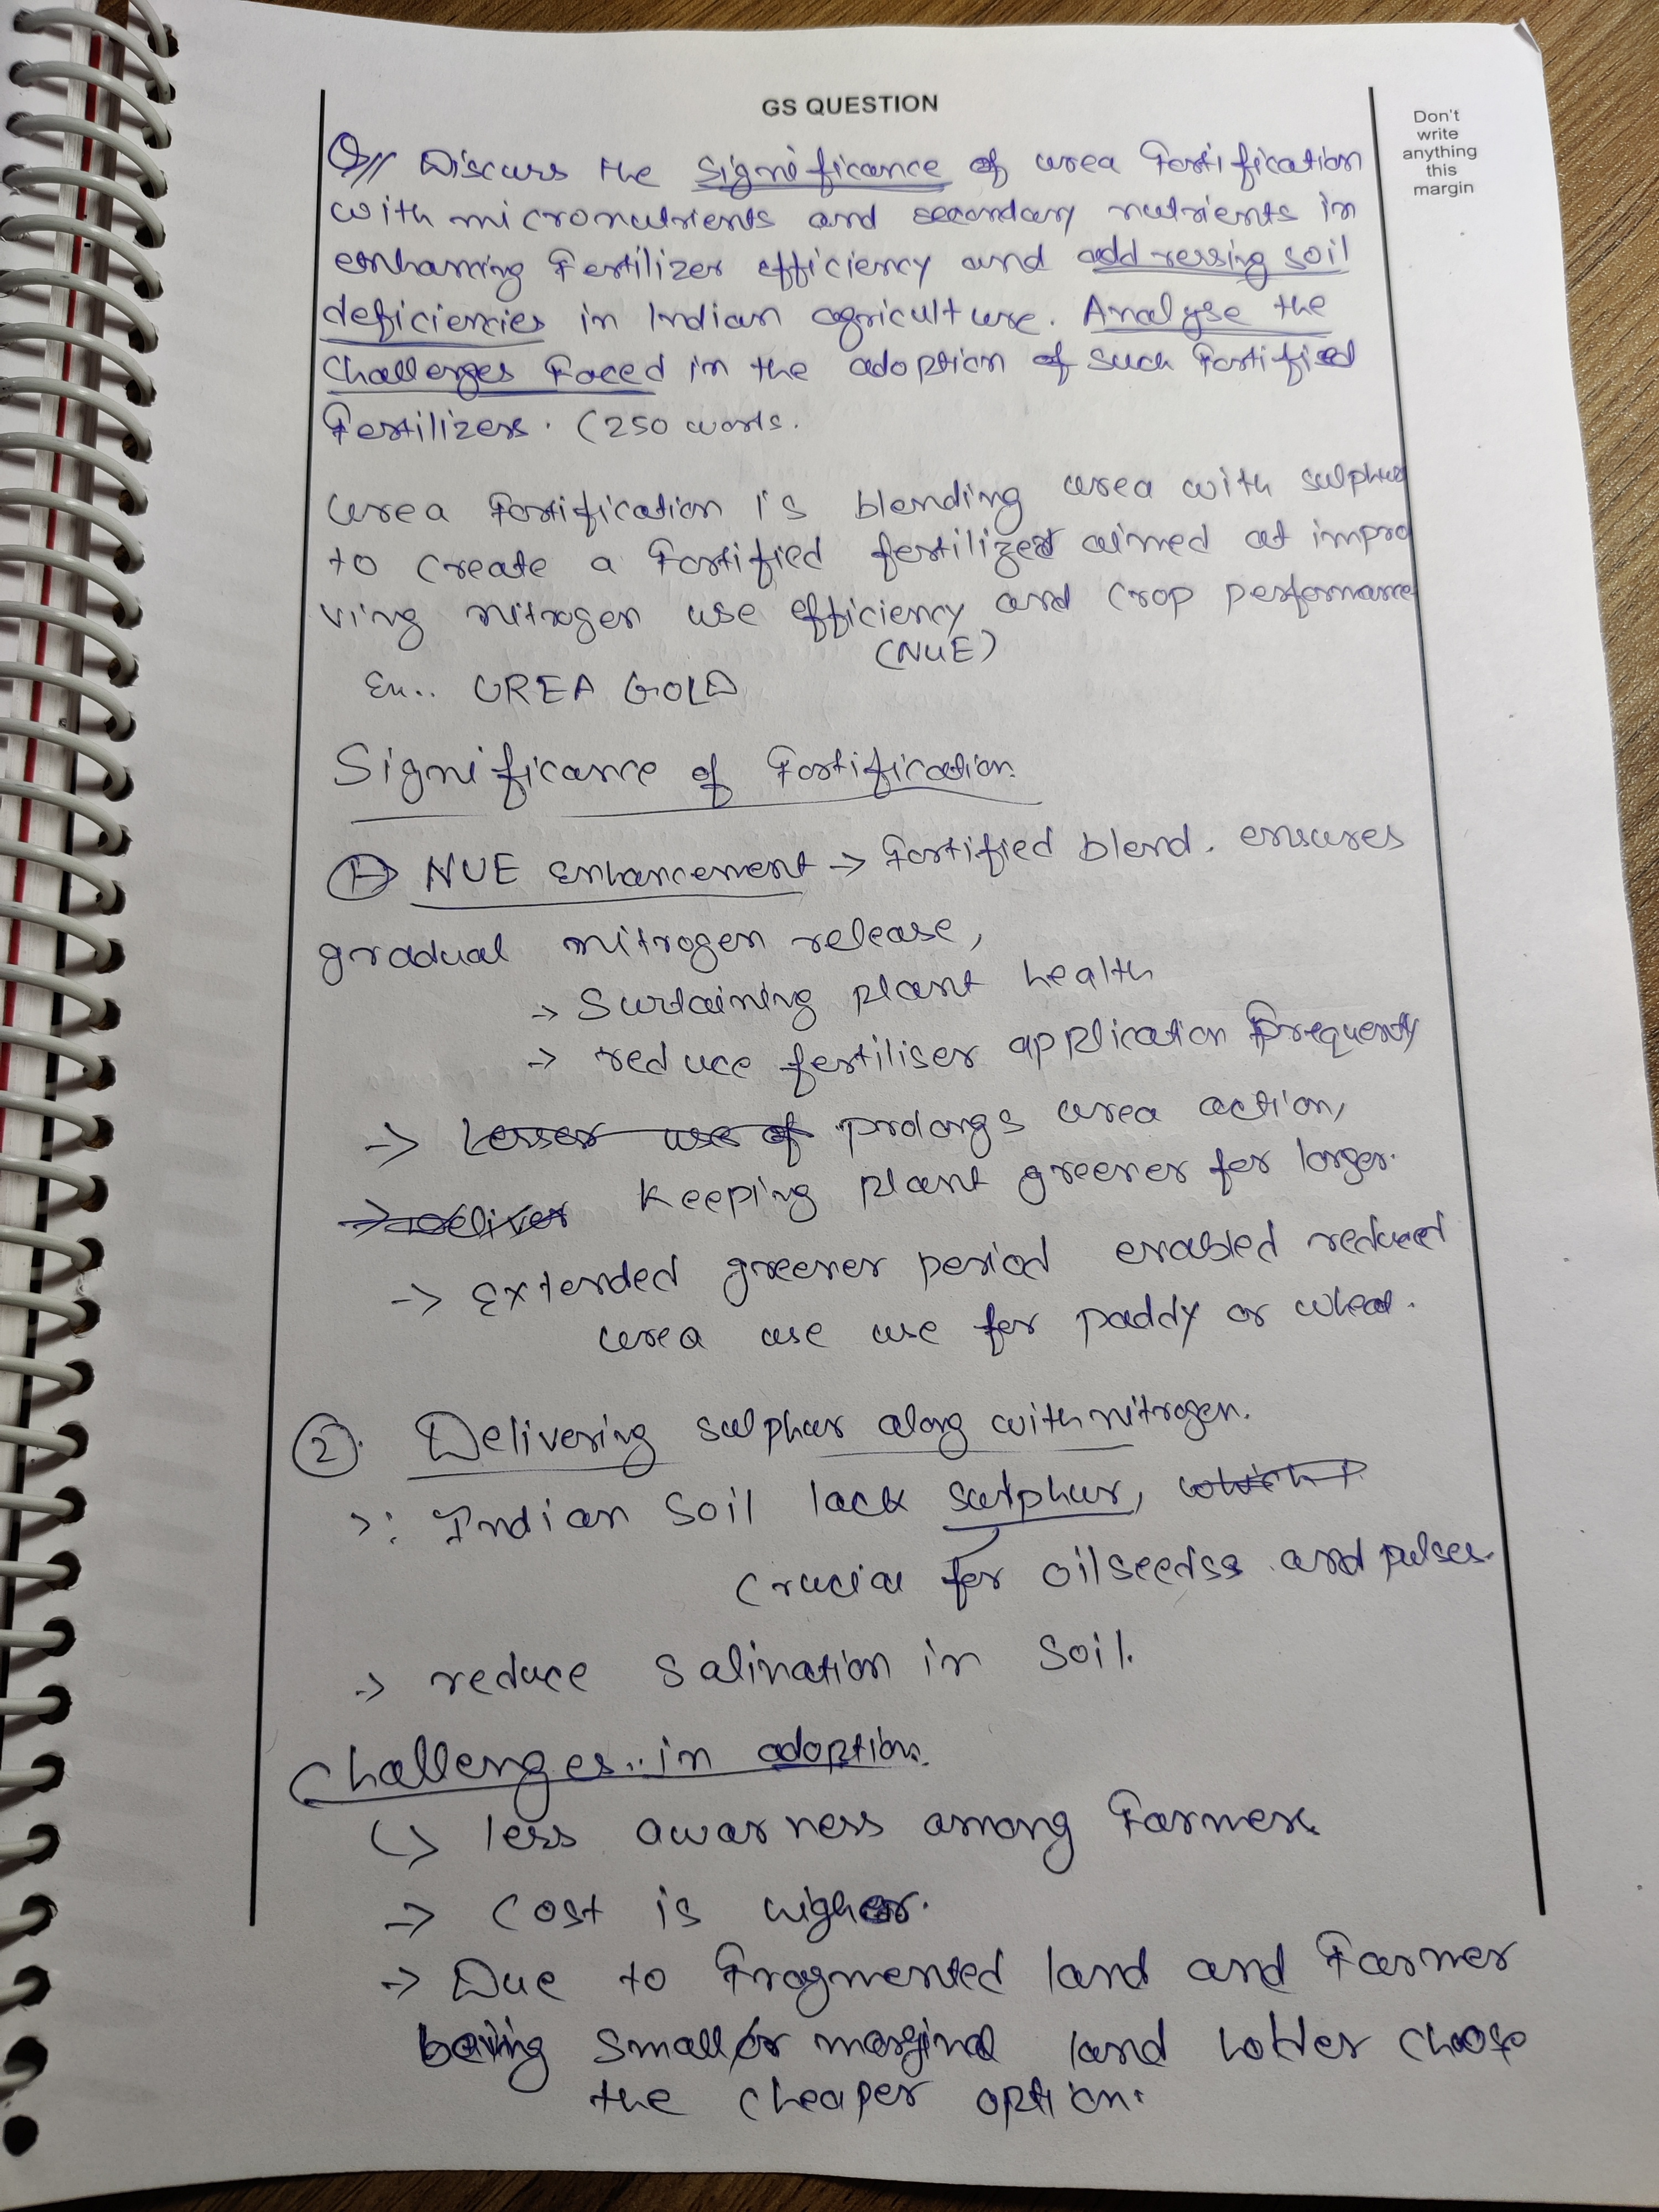 GS QUESTION
Don't
write
anything
this
margin
Q// Discuss the significance of urea fortification
with micronutrients and secondary nutrients in
enhancing fertilizer efficiency and addressing soil
deficiencies in Indian agriculture. Analyse the
challenges faced in the adoption of such fortified
fertilizers. (250 words.
urea fortification is blending urea with sulphur
to create a fortified fertilizer aimed at impro
ving nitrogen use efficiency and crop performance
(NUE)
Ex.. UREA GOLD
Significance of fortification.
① NUE enhancement → fortified blend. ensures
gradual nitrogen release,
→ Sustaining plant health
→ reduce fertiliser application frequently
→ Lesser use of prolongs urea action,
→ deliver keeping plant greener for longer.
→ Extended greener period enabled reduced
urea use use for paddy or wheat.
②. Delivering sulphur along with nitrogen.
→: Indian soil lack sulphur, which
crucial for oilseeds and pulses.
→ reduce salination in soil.
Challenges.. in adoption.
↳ less awarness among farmers.
→ cost is higher.
→ Due to fragmented land and farmer
being small/or marginal land holder choose
the cheaper option.